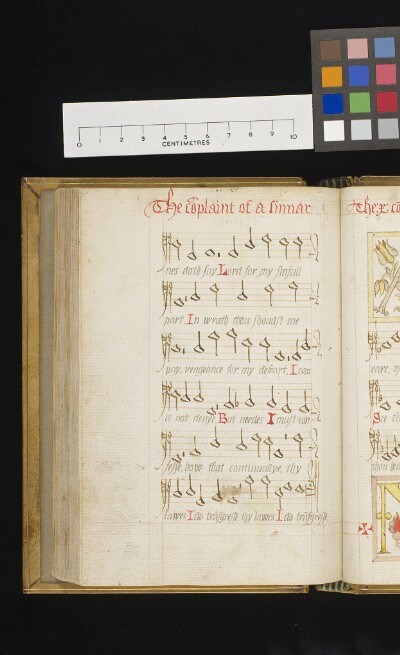 0 1 2 3 4 5 6 7 8 9 10
CENTIMETRES
The cõplaint of a sinnar
nes doth say Lord for my sinfull
part In wrath thou shouldst me
pay, vengeance for my desart, I can
it not denye But needes I must con
fesse, how that continuallye, thy
lawes I do trãsgresse thy lawes I do trãsgresse
The x co